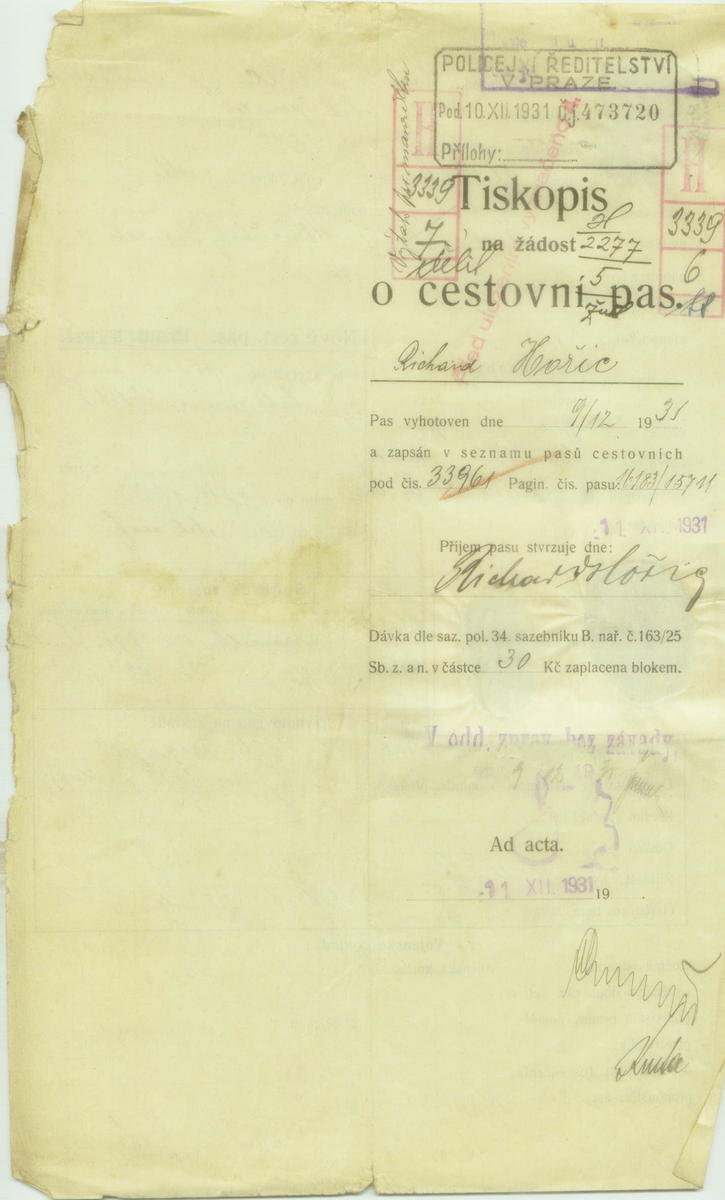 POLICEJNÍ ŘEDITELSTVÍ
V PRAZE
Pod. 10. XII. 1931 Čj. 473720
Přílohy:
H
3339
7
H
3339
6
Tiskopis
na žádost
o cestovní pas.
H
2277
5
Richard Hořic
Pas vyhotoven dne 9/12 1931
a zapsán v seznamu pasů cestovních
pod čís. 33961 Pagin. čís. pasu 16183/15711
11 XII. 1931
Příjem pasu stvrzuje dne:
Richard Hořic
Dávka dle saz. pol. 34. sazebníku B. nař. č. 163/25
Sb. z. a n. v částce 30 Kč zaplacena blokem.
V odd. zpráv bez závady.
Ad acta.
-11 XII. 1931 19